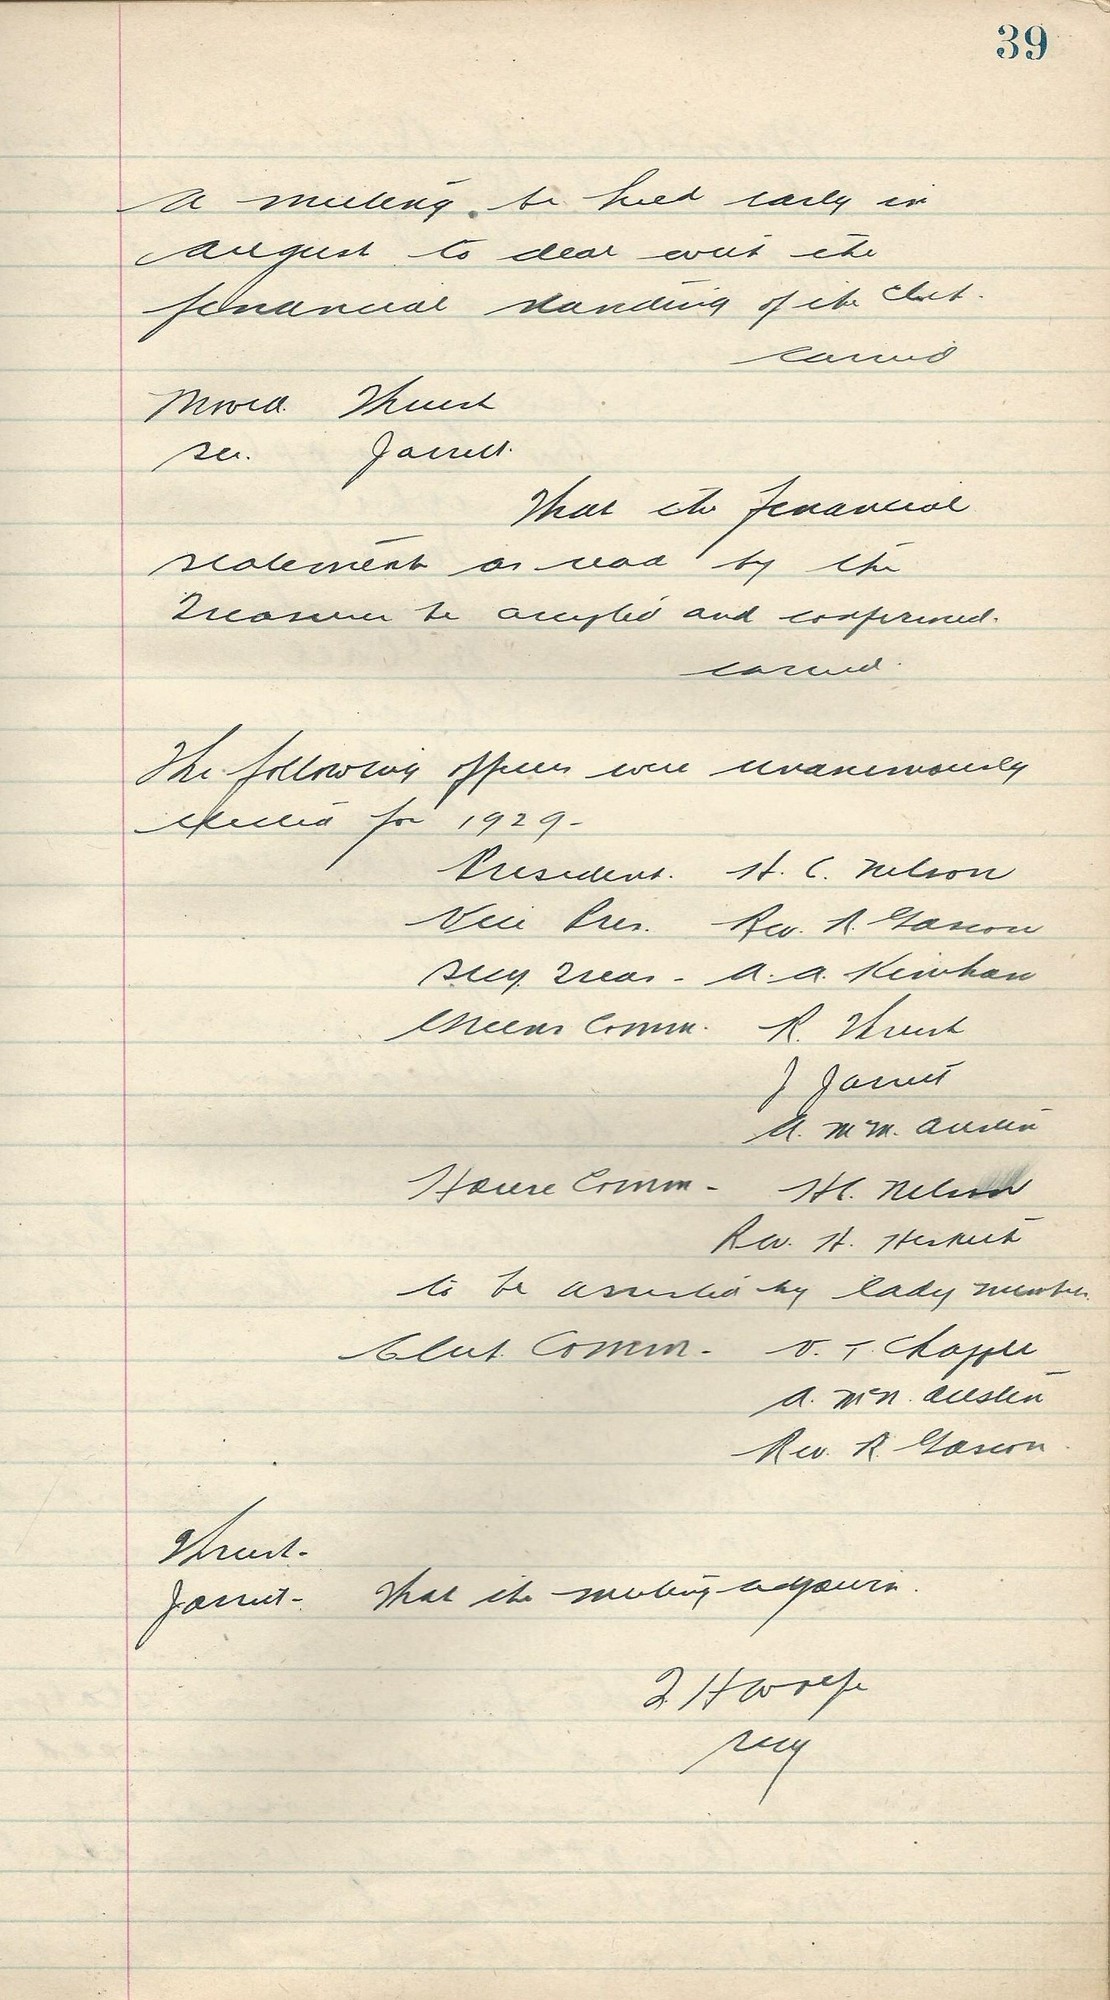 39
A meeting be held early in
August to deal with the
financial standing of the Club.
carried
Moved Thrust
Sec. Jarrett.
That the financial
statement as read by the
Treasurer be accepted and confirmed.
carried.
The following officers were unanimously
elected for 1929-
President. H. C. Nelson
Vice Pres. Rev. R. Gascon
Secy. Treas - A. A. Kirwhan
Greens Comm. R. Thrust
J Jarrett
House Comm - H C. Nelson
Rev. H.
to be assisted by lady members
Club Comm - T. Chapple
A. McN. Austin
Rev. R Gascon.
Thrust -
Jarrett - That the meeting adjourn.
Secy